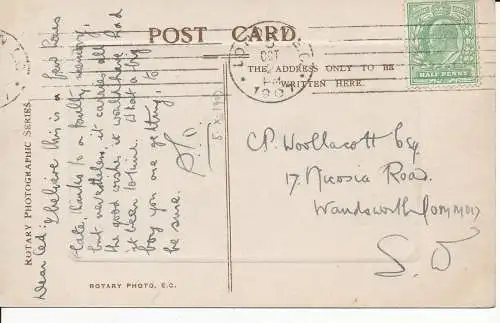 POST CARD.
THE ADDRESS ONLY TO BE
WRITTEN HERE.
HALF PENNY
LONDON
OCT
ROTARY PHOTOGRAPHIC SERIES
Dear Ced: I believe this is a few hours
late, thanks to a faulty memory,
but nevertheless, it carries all
the good wishes it would have had
if been to time. What a big
boy you are getting, to
be sure.
C.P. Woollacott Esq
17. Nicosia Road.
Wandsworth Common
S. W
ROTARY PHOTO, E.C.